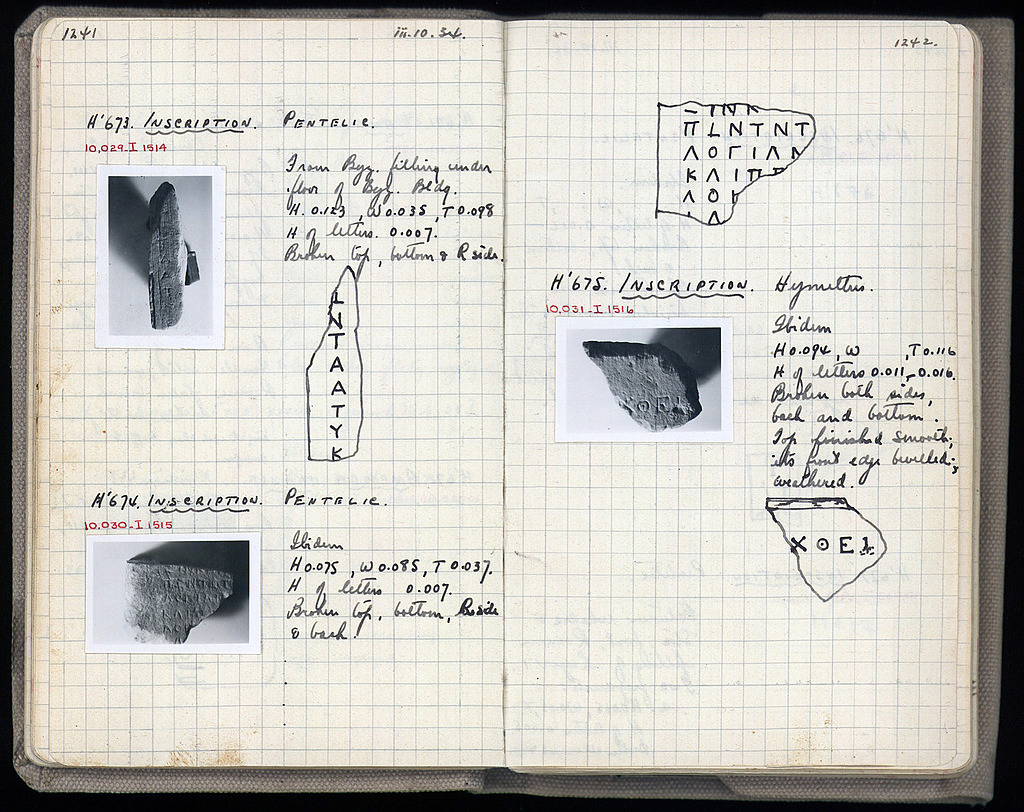 1241
iii.10.34.
H'673. INSCRIPTION. PENTELIC.
10,029-I 1514
From Byz. filling under
floor of Byz. Bldg.
H. 0.123, W 0.035, T 0.098
H of letters. 0.007.
Broken top, bottom & R side.
L
N
T
A
A
A
T
Y
K
H'674. INSCRIPTION. PENTELIC.
10,030-I 1515
Ibidem
H 0.075, W 0.085, T 0.037.
H of letters 0.007.
Broken top, bottom, R side
& back.
1242.
Π L N T N T
Λ Ο Γ Ι Λ Λ
Κ Λ Ι Π
Λ Ο
Λ
H'675. INSCRIPTION. Hymettus.
10,031-I 1516
Ibidem
H 0.094, W , T 0.116
H of letters 0.011-0.016.
Broken both sides,
back and bottom.
Top finished smooth;
its front edge bevelled;
weathered.
Χ Θ Ε Ι